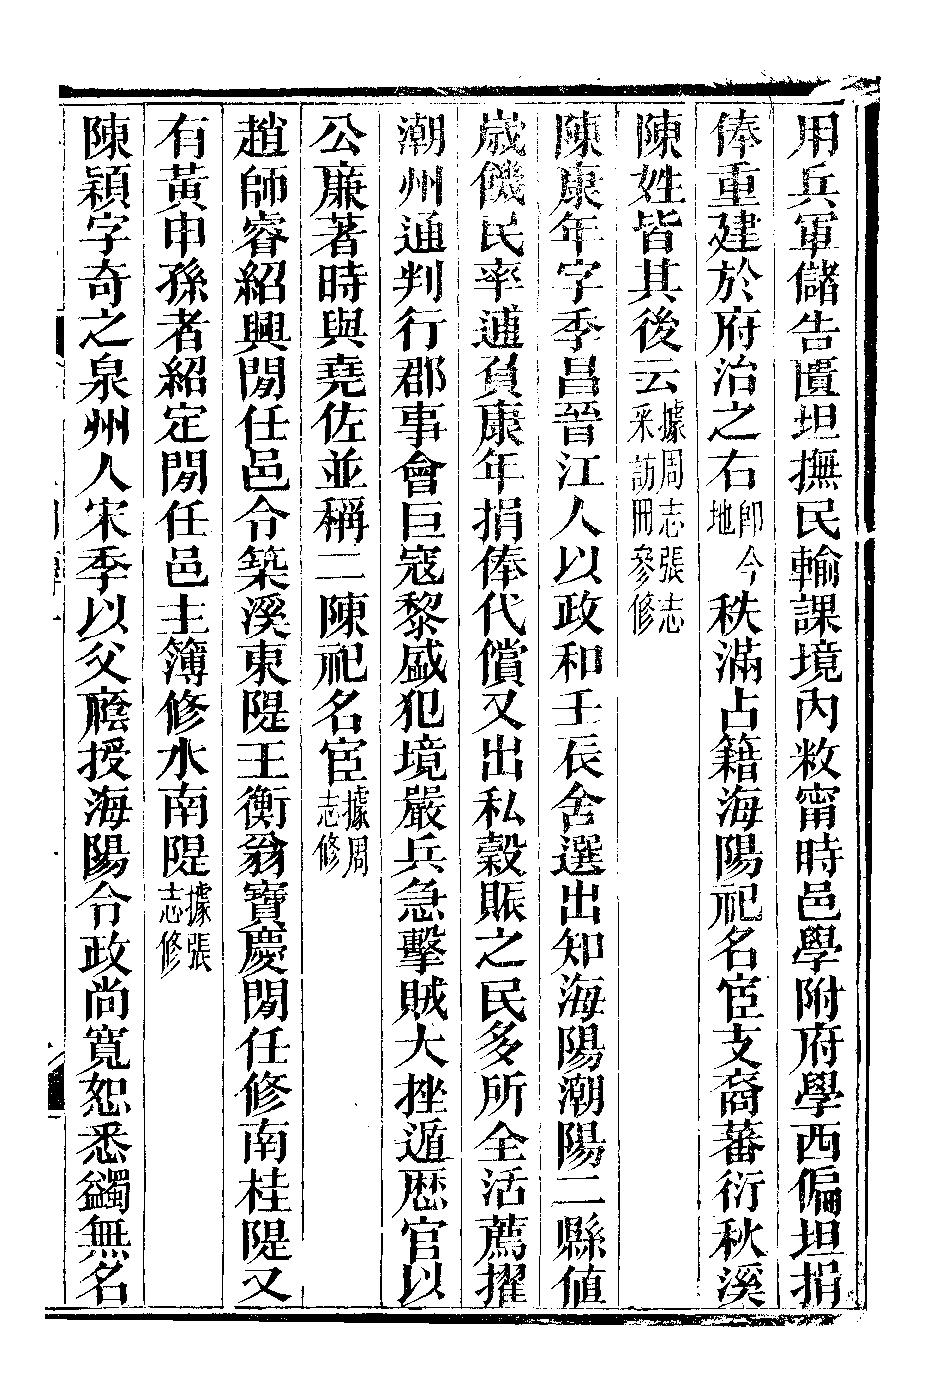 用兵軍儲告匱坦撫民輸課境內敉甯時邑學附府學西偏坦捐
俸重建於府治之右卽今地秩滿占籍海陽祀名宦支裔蕃衍秋溪
陳姓皆其後云據周志張志采訪冊參修
陳康年字季昌晉江人以政和壬辰舍選出知海陽潮陽二縣値
歲饑民率逋負康年捐俸代償又出私穀賑之民多所全活薦擢
潮州通判行郡事會巨寇黎盛犯境嚴兵急擊賊大挫遁歷官以
公廉著時與堯佐並稱二陳祀名宦據周志修
趙師睿紹興閒任邑令築溪東隄王衡翁寶慶閒任修南桂隄又
有黃申孫者紹定閒任邑主簿修水南隄據張志修
陳穎字奇之泉州人宋季以父廕授海陽令政尚寬恕悉蠲無名